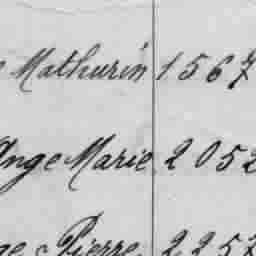 Mathurin 1567
Ange Marie 2052
Pierre 2257